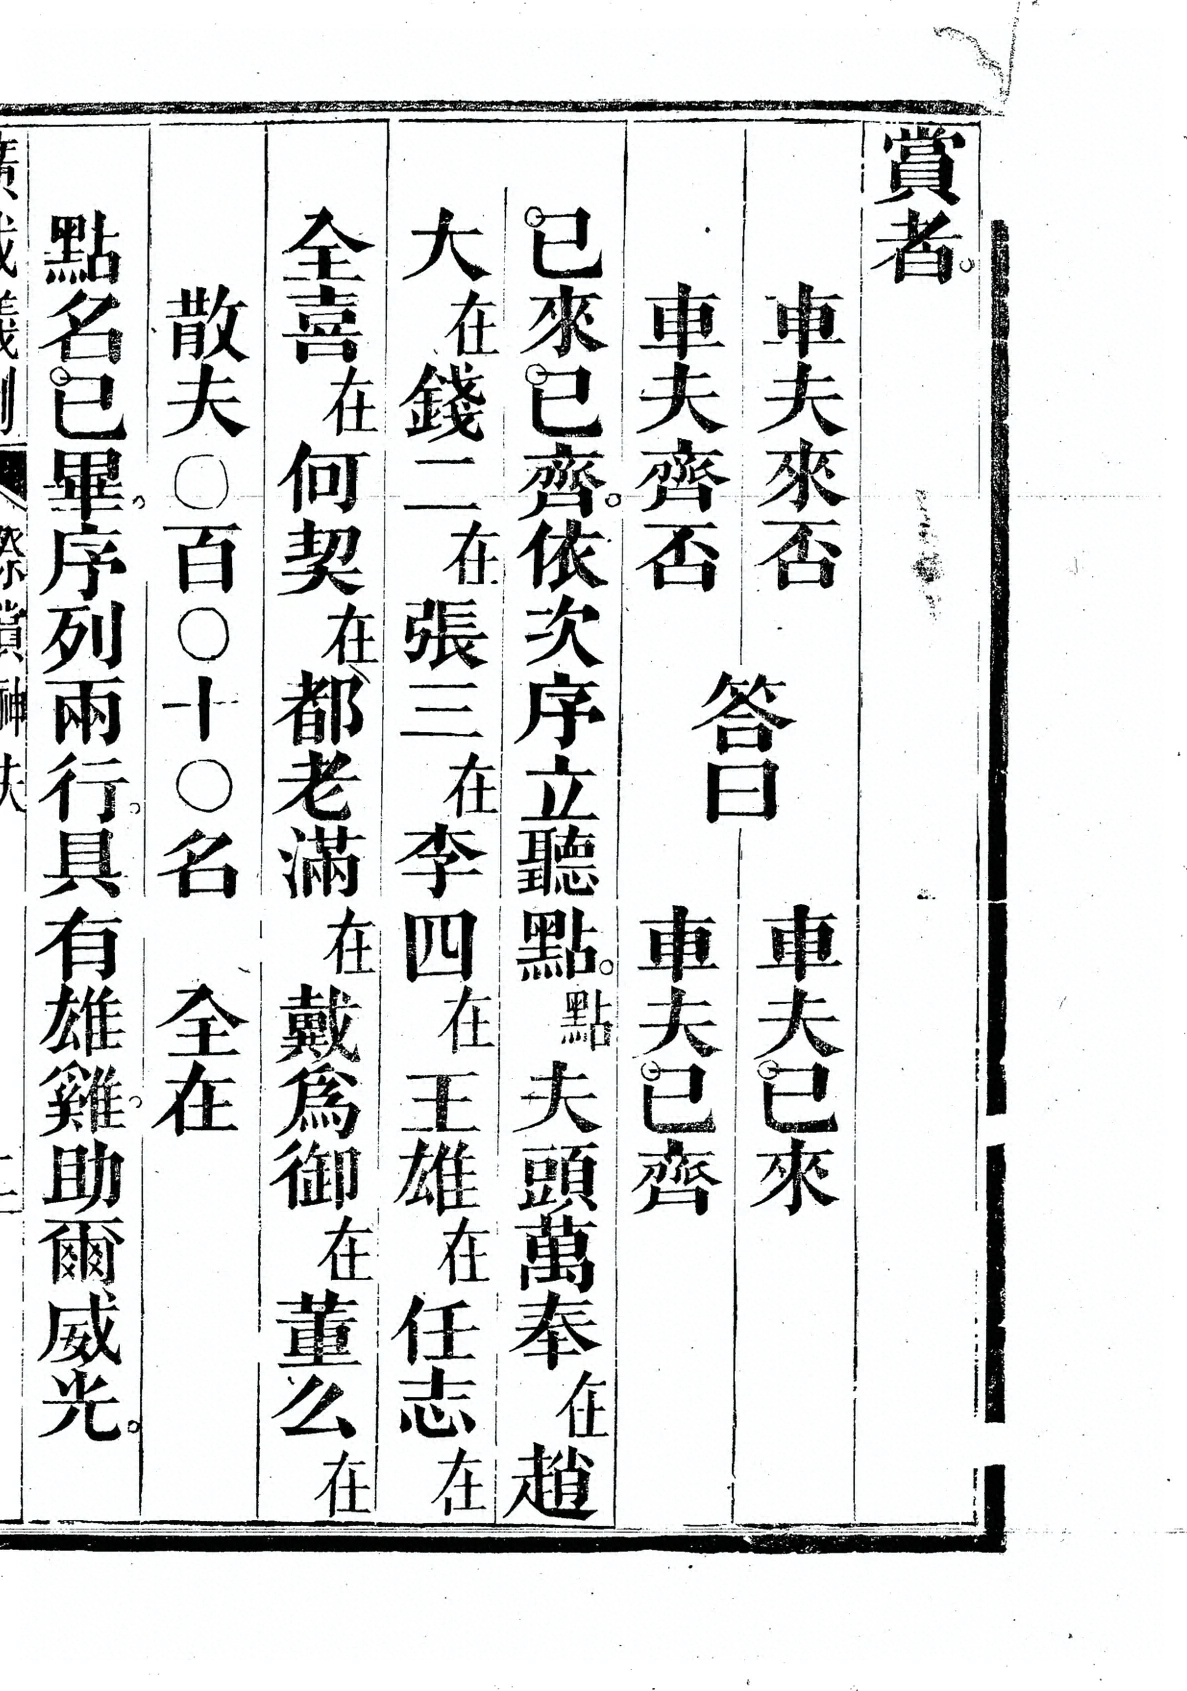 賞者。
車夫來否
車夫齊否
答曰
車夫已來
車夫已齊
已來已齊。依次序立聽點。點夫頭萬奉在趙
大在錢二在張三在李四在王雄在任志在
全喜在何契在都老滿在戴爲御在董么在
散夫〇百〇十〇名 全在
點名已畢。序列兩行。具有雄雞。助爾威光。
廣成儀制 祭賞神夫